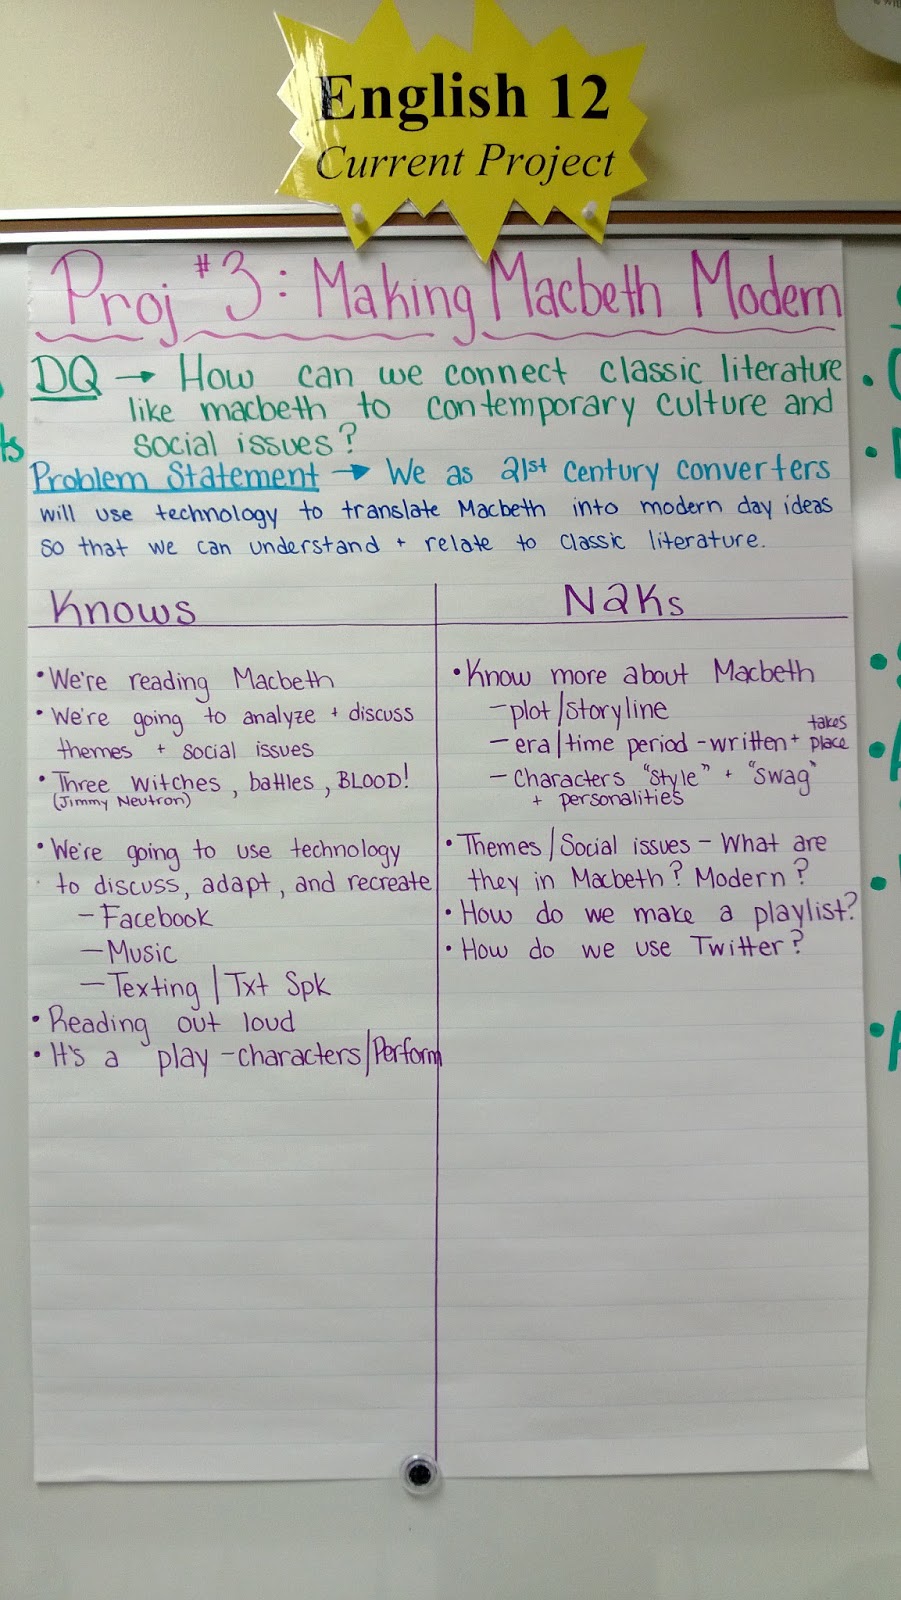 English 12
Current Project
Proj #3: Making Macbeth Modern
DQ → How can we connect classic literature
like macbeth to contemporary culture and
social issues?
Problem Statement → We as 21st century converters
will use technology to translate Macbeth into modern day ideas
so that we can understand + relate to classic literature.
Knows
• We're reading Macbeth
• We're going to analyze + discuss
themes + social issues
• Three witches, battles, BLOOD!
(Jimmy Neutron)
• We're going to use technology
to discuss, adapt, and recreate
- Facebook
- Music
- Texting / Txt Spk
• Reading out loud
• It's a play - characters/Perform
N2Ks
• Know more about Macbeth
- plot/storyline
- era/time period - written + takes place
- Characters "Style" + "Swag"
+ personalities
• Themes/Social issues - What are
they in Macbeth? Modern?
• How do we make a playlist?
• How do we use Twitter?